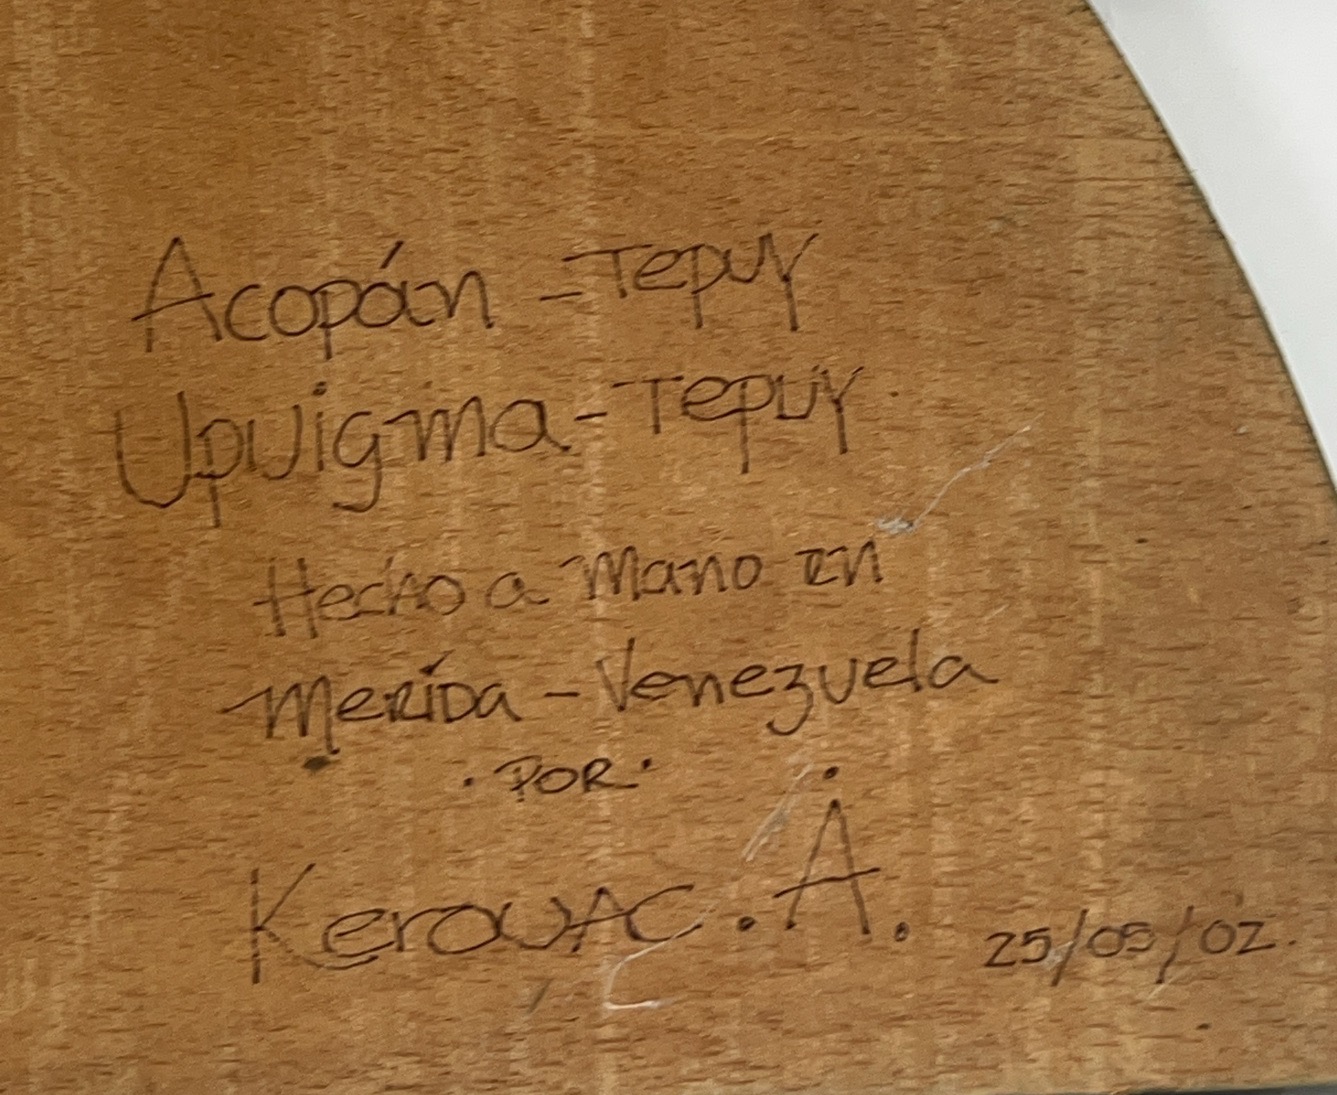 Acopán - Tepuy
Upuigma - Tepuy.
Hecho a Mano en
Merida - Venezuela
· POR ·
Kerouac . A . 25/05/02.